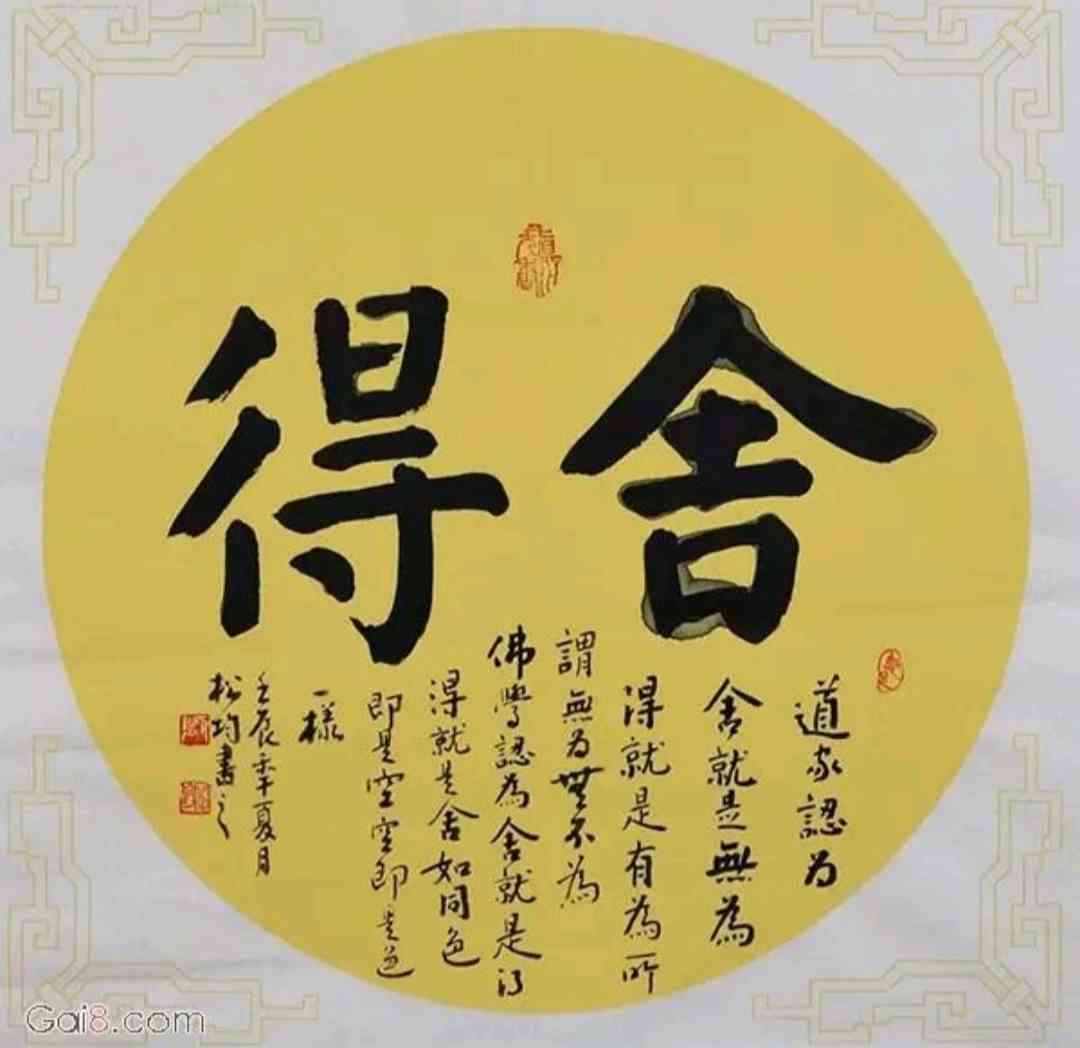 舍得
道家認为
舍就是無為
得就是有為所
謂無为無不為
佛學認為舍就是得
得就是舍如同色
即是空空即是色
一樣
壬辰秊夏月
松均書之
Gai8.com